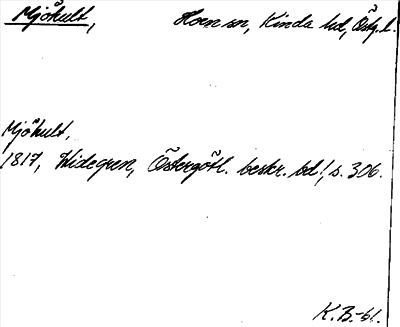 Mjöhult, Horn sn, Kinda hd, Östg.l.
Mjöhult.
1817, Widegren, Östergötl. beskr. bd 1, s. 306.
K.B.-61.